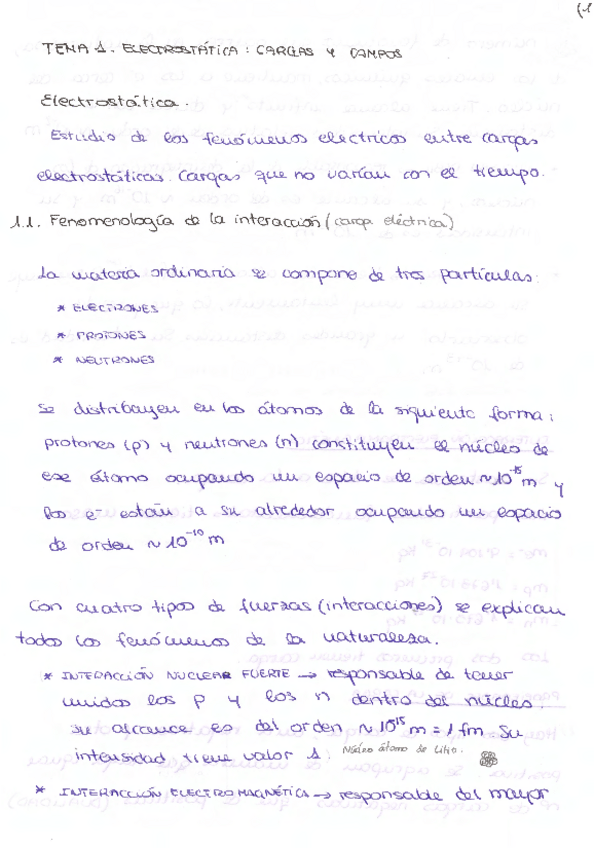 (1
TEMA 1. ELECTROSTÁTICA: CARGAS Y CAMPOS
Electrostática.
Estudio de los fenómenos electricos entre cargas
electrostáticas. Cargas que no varían con el tiempo.
1.1. Fenomenología de la interacción (carga eléctrica)
La materia ordinaria se compone de tres partículas:
* ELECTRONES
* PROTONES
* NEUTRONES
Se distribuyen en los átomos de la siguiente forma:
protones (p) y neutrones (n) constituyen el núcleo de
ese átomo ocupando un espacio de orden ~10⁻¹⁵m y
los e⁻ están a su alrededor ocupando un espacio
de orden ~10⁻¹⁰m
Con cuatro tipos de fuerzas (interacciones) se explican
todos los fenómenos de la naturaleza.
* INTERACCIÓN NUCLEAR FUERTE → responsable de tener
unidos los p y los n dentro del núcleo.
Su alcance es del orden ~10¹⁵m = 1 fm. Su
intensidad tiene valor 1. Núcleo átomo de Litio.
* INTERACCIÓN ELECTROMAGNÉTICA → responsable del mayor